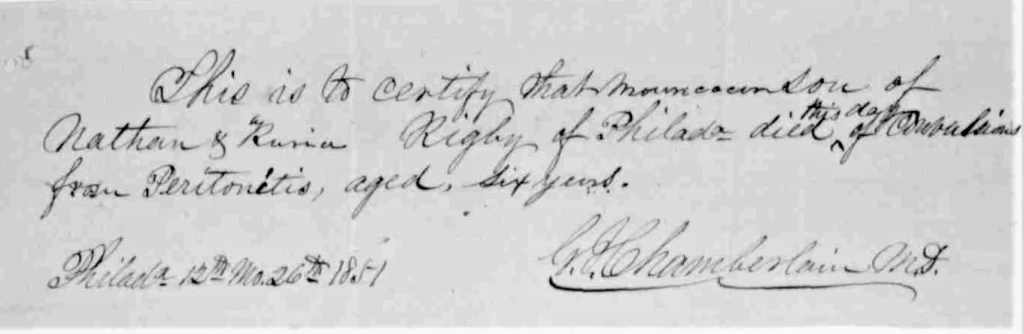 This is to certify that son of
Nathan & Rigby of Philada died this day of Convulsions
from Peritonetis, aged, six years.
Philada 12th Mo. 26th 1851
G. J. Chamberlain M.D.